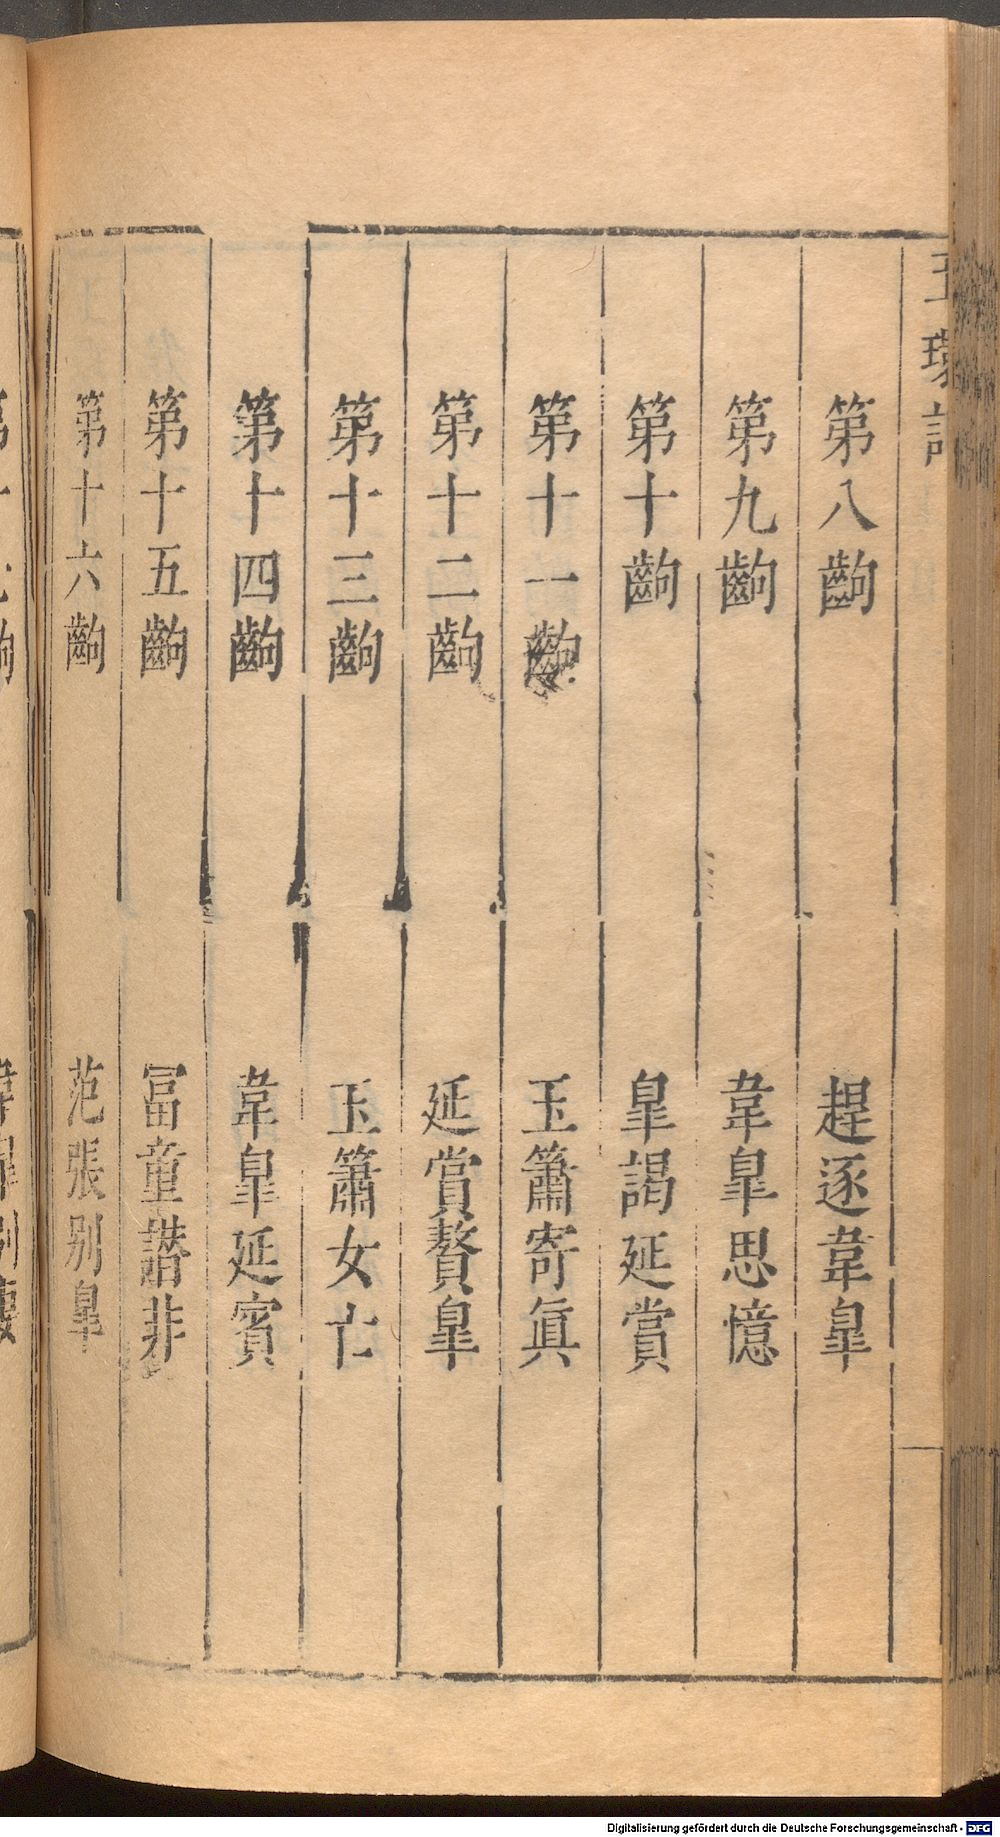 玉環記
第八齣 趕逐韋臯
第九齣 韋臯思憶
第十齣 臯謁延賞
第十一齣 玉簫寄眞
第十二齣 延賞贅臯
第十三齣 玉簫女亡
第十四齣 韋臯延賓
第十五齣 冨童譖非
第十六齣 范張别臯
Digitalisierung gefördert durch die Deutsche Forschungsgemeinschaft - DFG